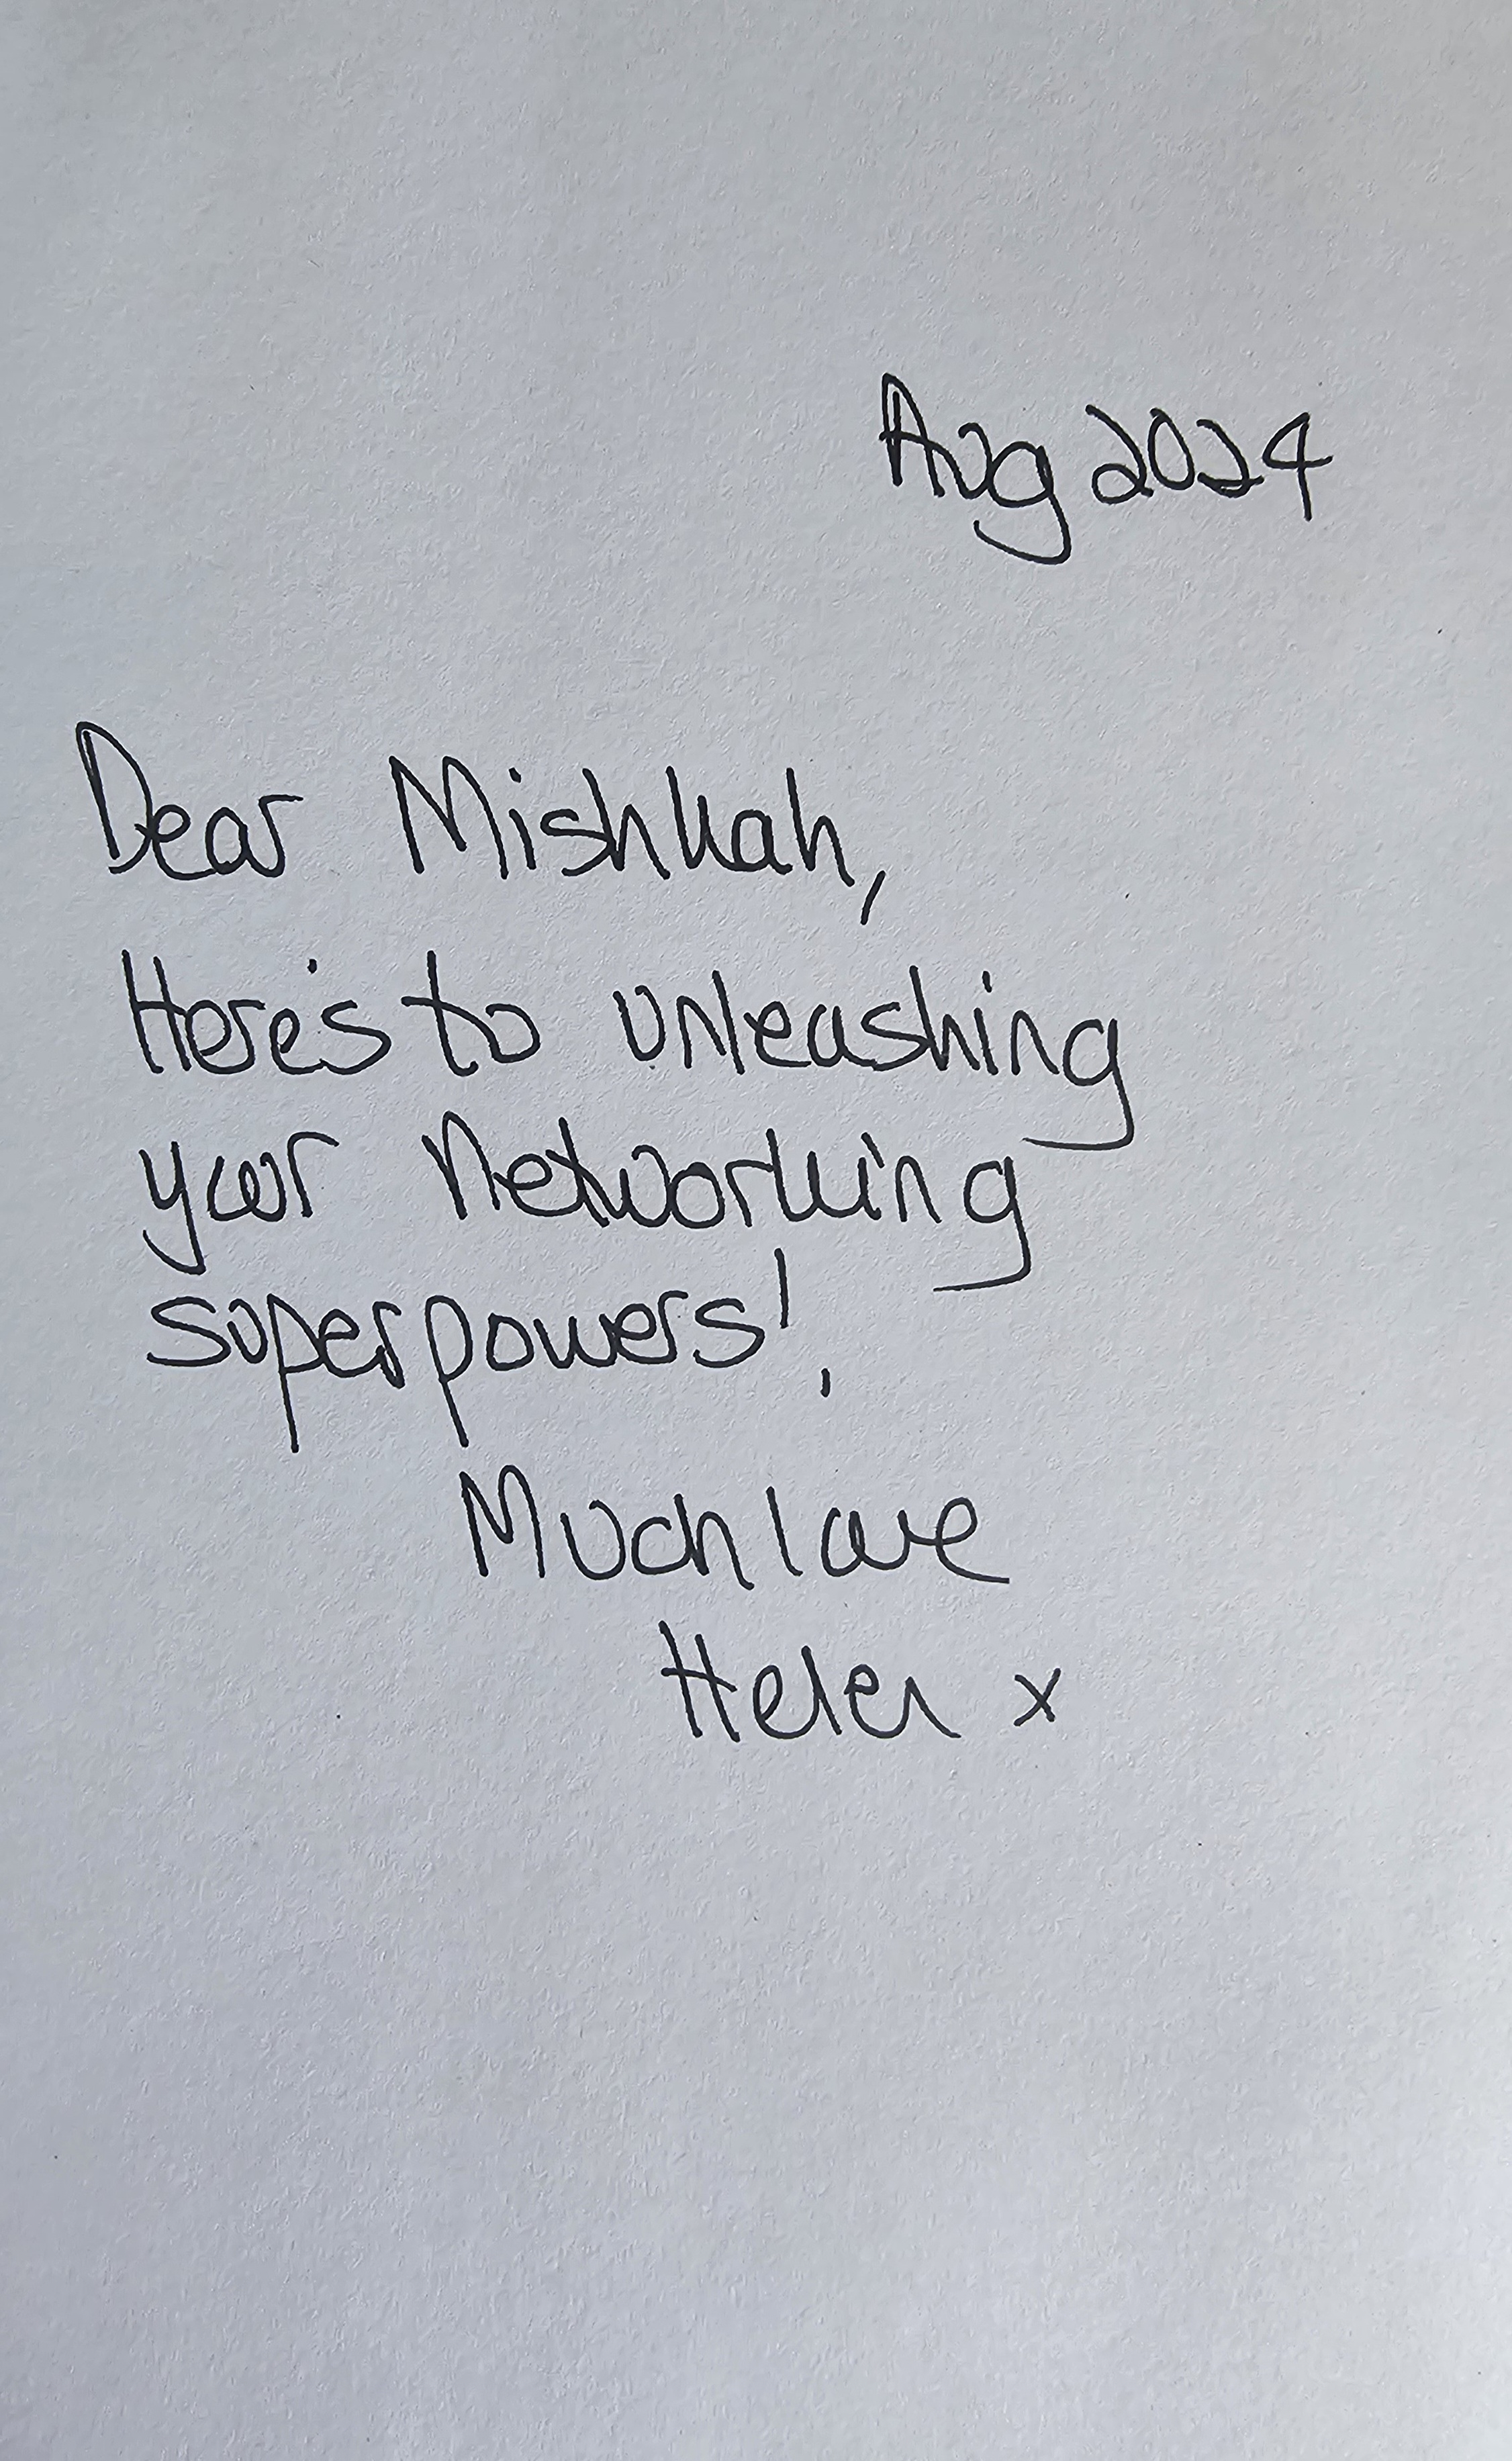 Aug 2024
Dear Mishkah,
Here's to unleashing
your networking
superpowers!
Much love
Helen x